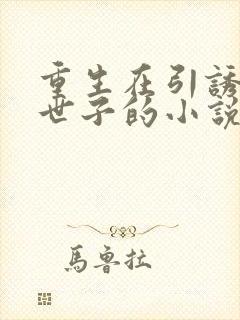 重生在引誘
世子的小說
馬魯拉